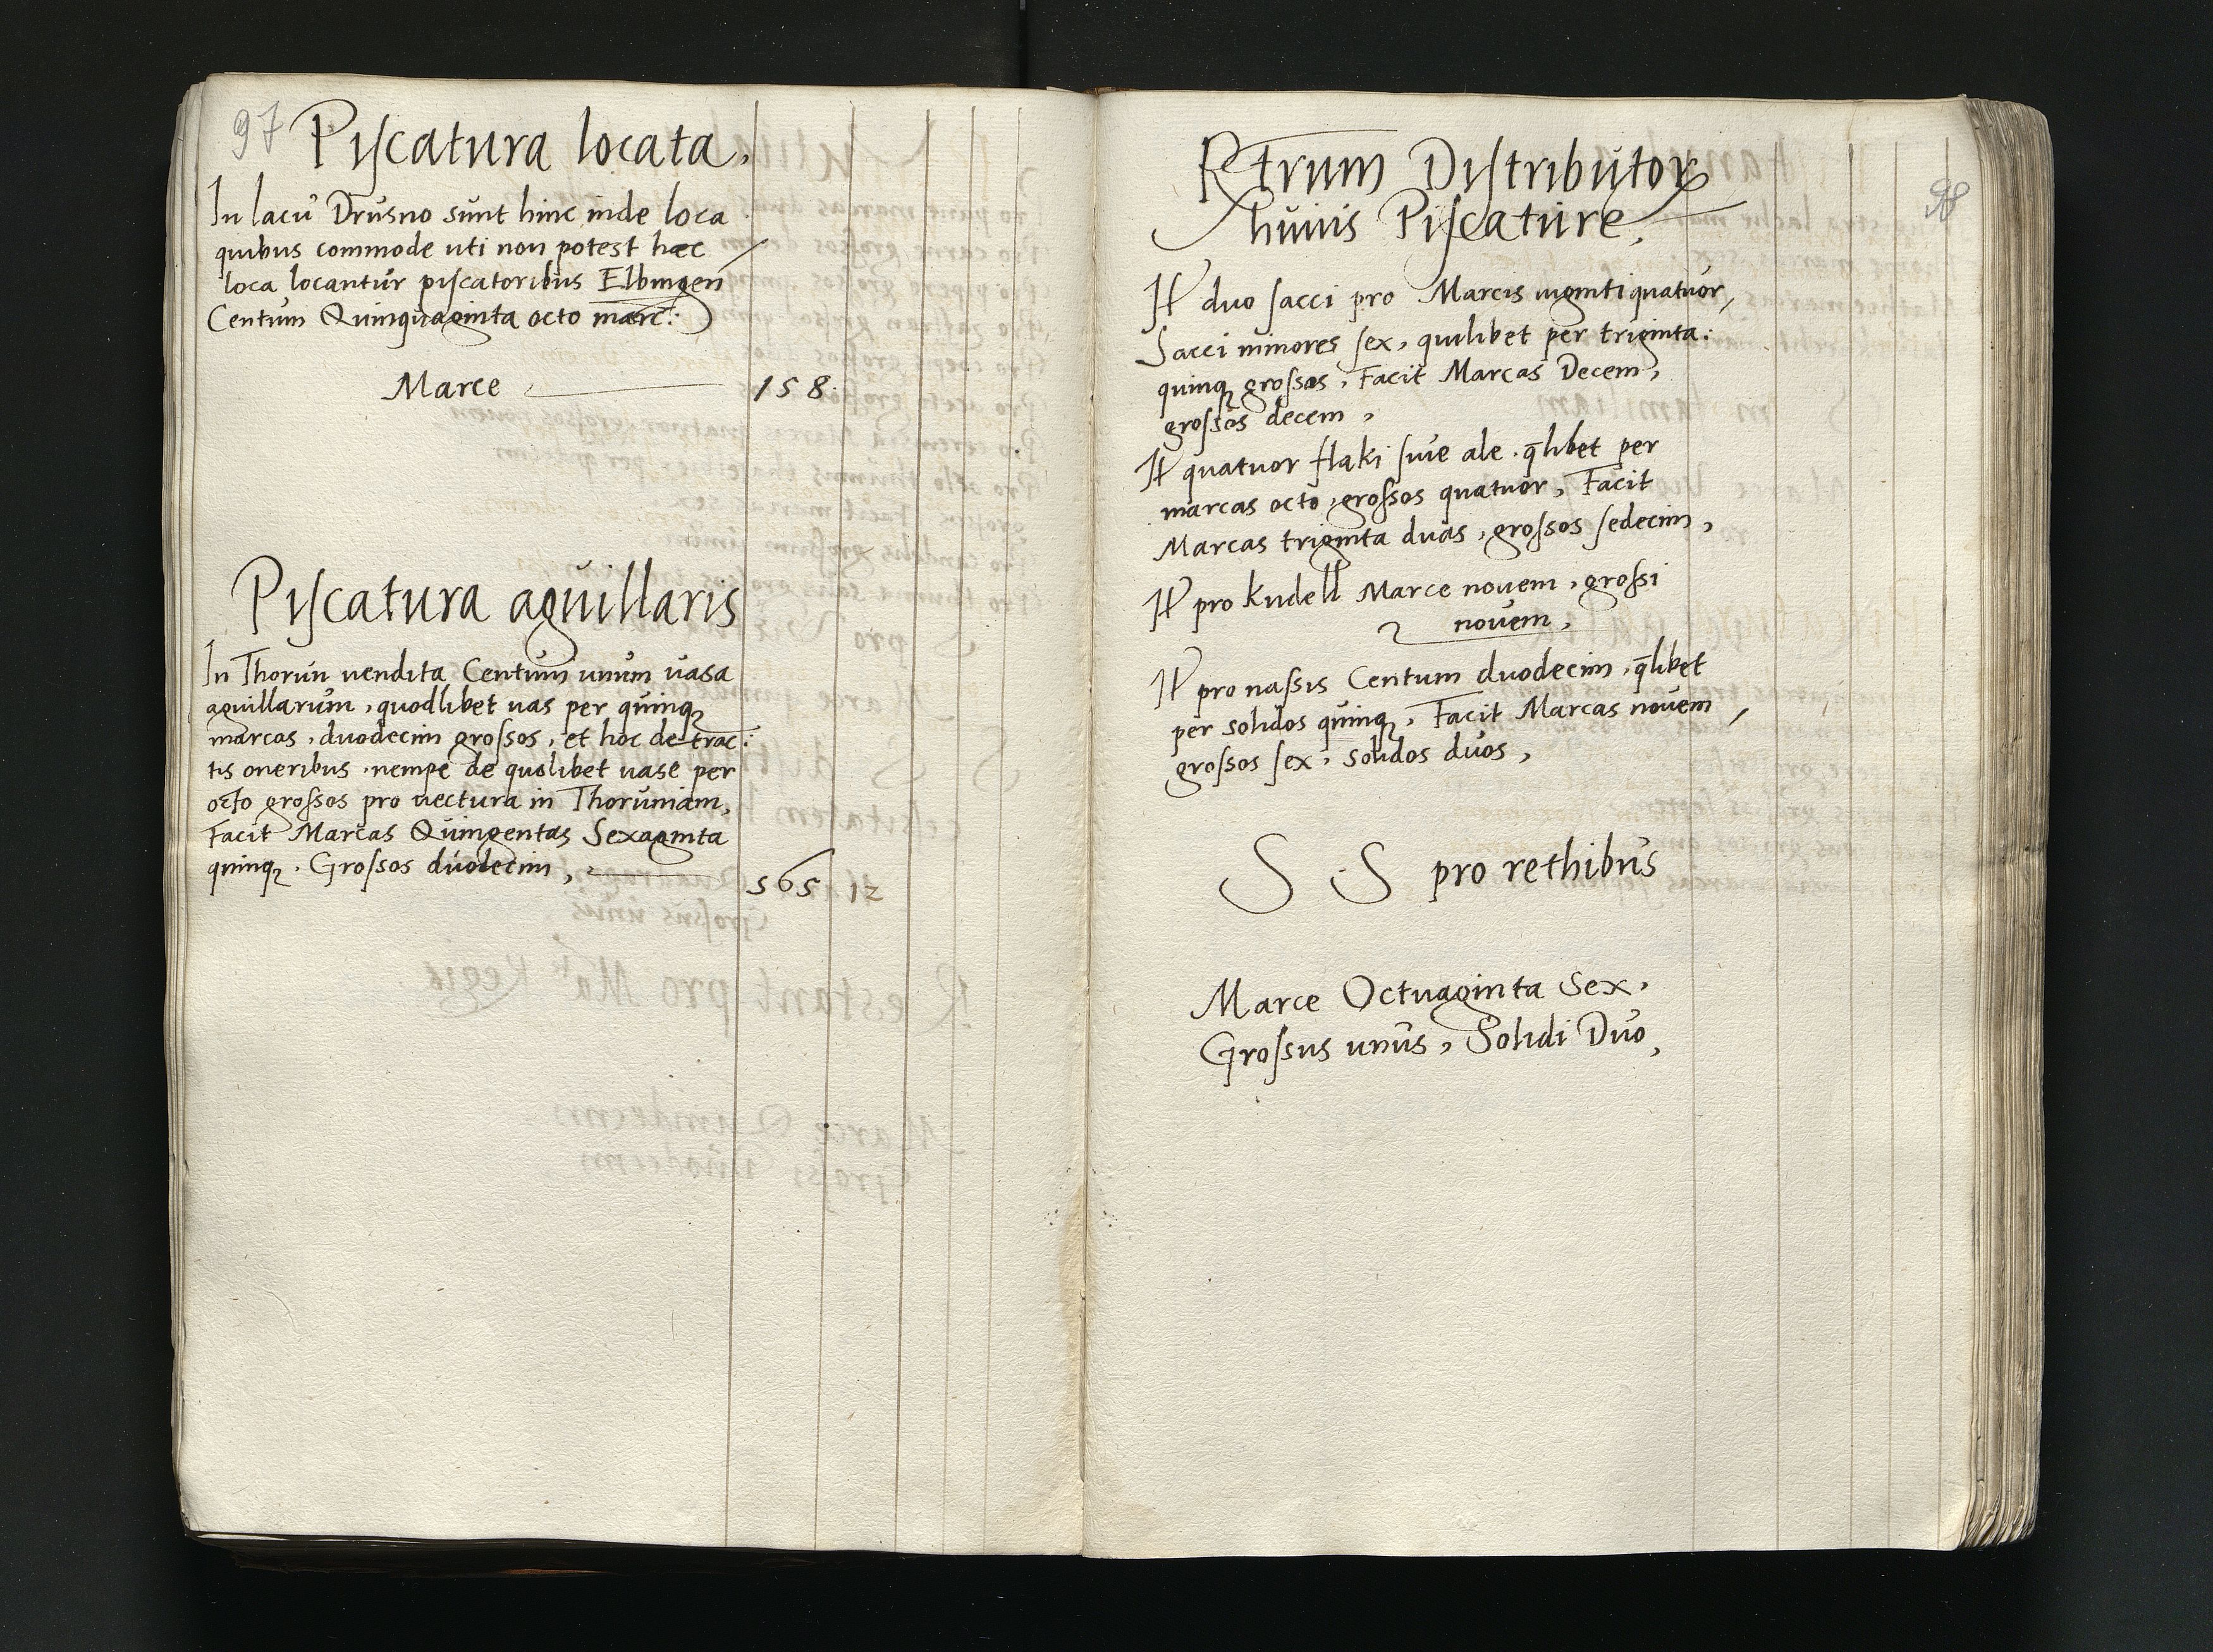 97
Piscatura locata.
In lacu Drusno sunt hinc inde loca
quibus commode uti non potest hæc
loca locantur piscatoribus Elbingen
Centum Quinquaginta octo marc:
Marce 158
Piscatura aguillaris
In Thorun vendita Centum unum vasa
aguillarum, quodlibet vas per quinq;
marcas, duodecim grossos, et hoc detrac:
tis oneribus, nempe de quolibet vase per
octo grossos pro vectura in Thoruniam,
Facit Marcas Quingentas Sexaginta
quinq;. Grossos duodecim, 565 12
98
Rtrum Distributor
huius Piscature,
It duo sacci pro Marcis viginti quatuor,
Sacci minores sex, quilibet per triginta:
quinq; grossos, Facit Marcas Decem,
grossos decem,
It quatuor flaki sive ale. qlibet per
marcas octo, grossos quatuor, Facit
Marcas triginta duas, grossos sedecim,
It pro kudell Marce novem, grossi
novem,
It pro nassis Centum duodecim, qlibet
per solidos quinq;, Facit Marcas novem
grossos sex, solidos duos,
S S pro rethibus
Marce Octuaginta Sex,
Grossus unus, Solidi Duo,